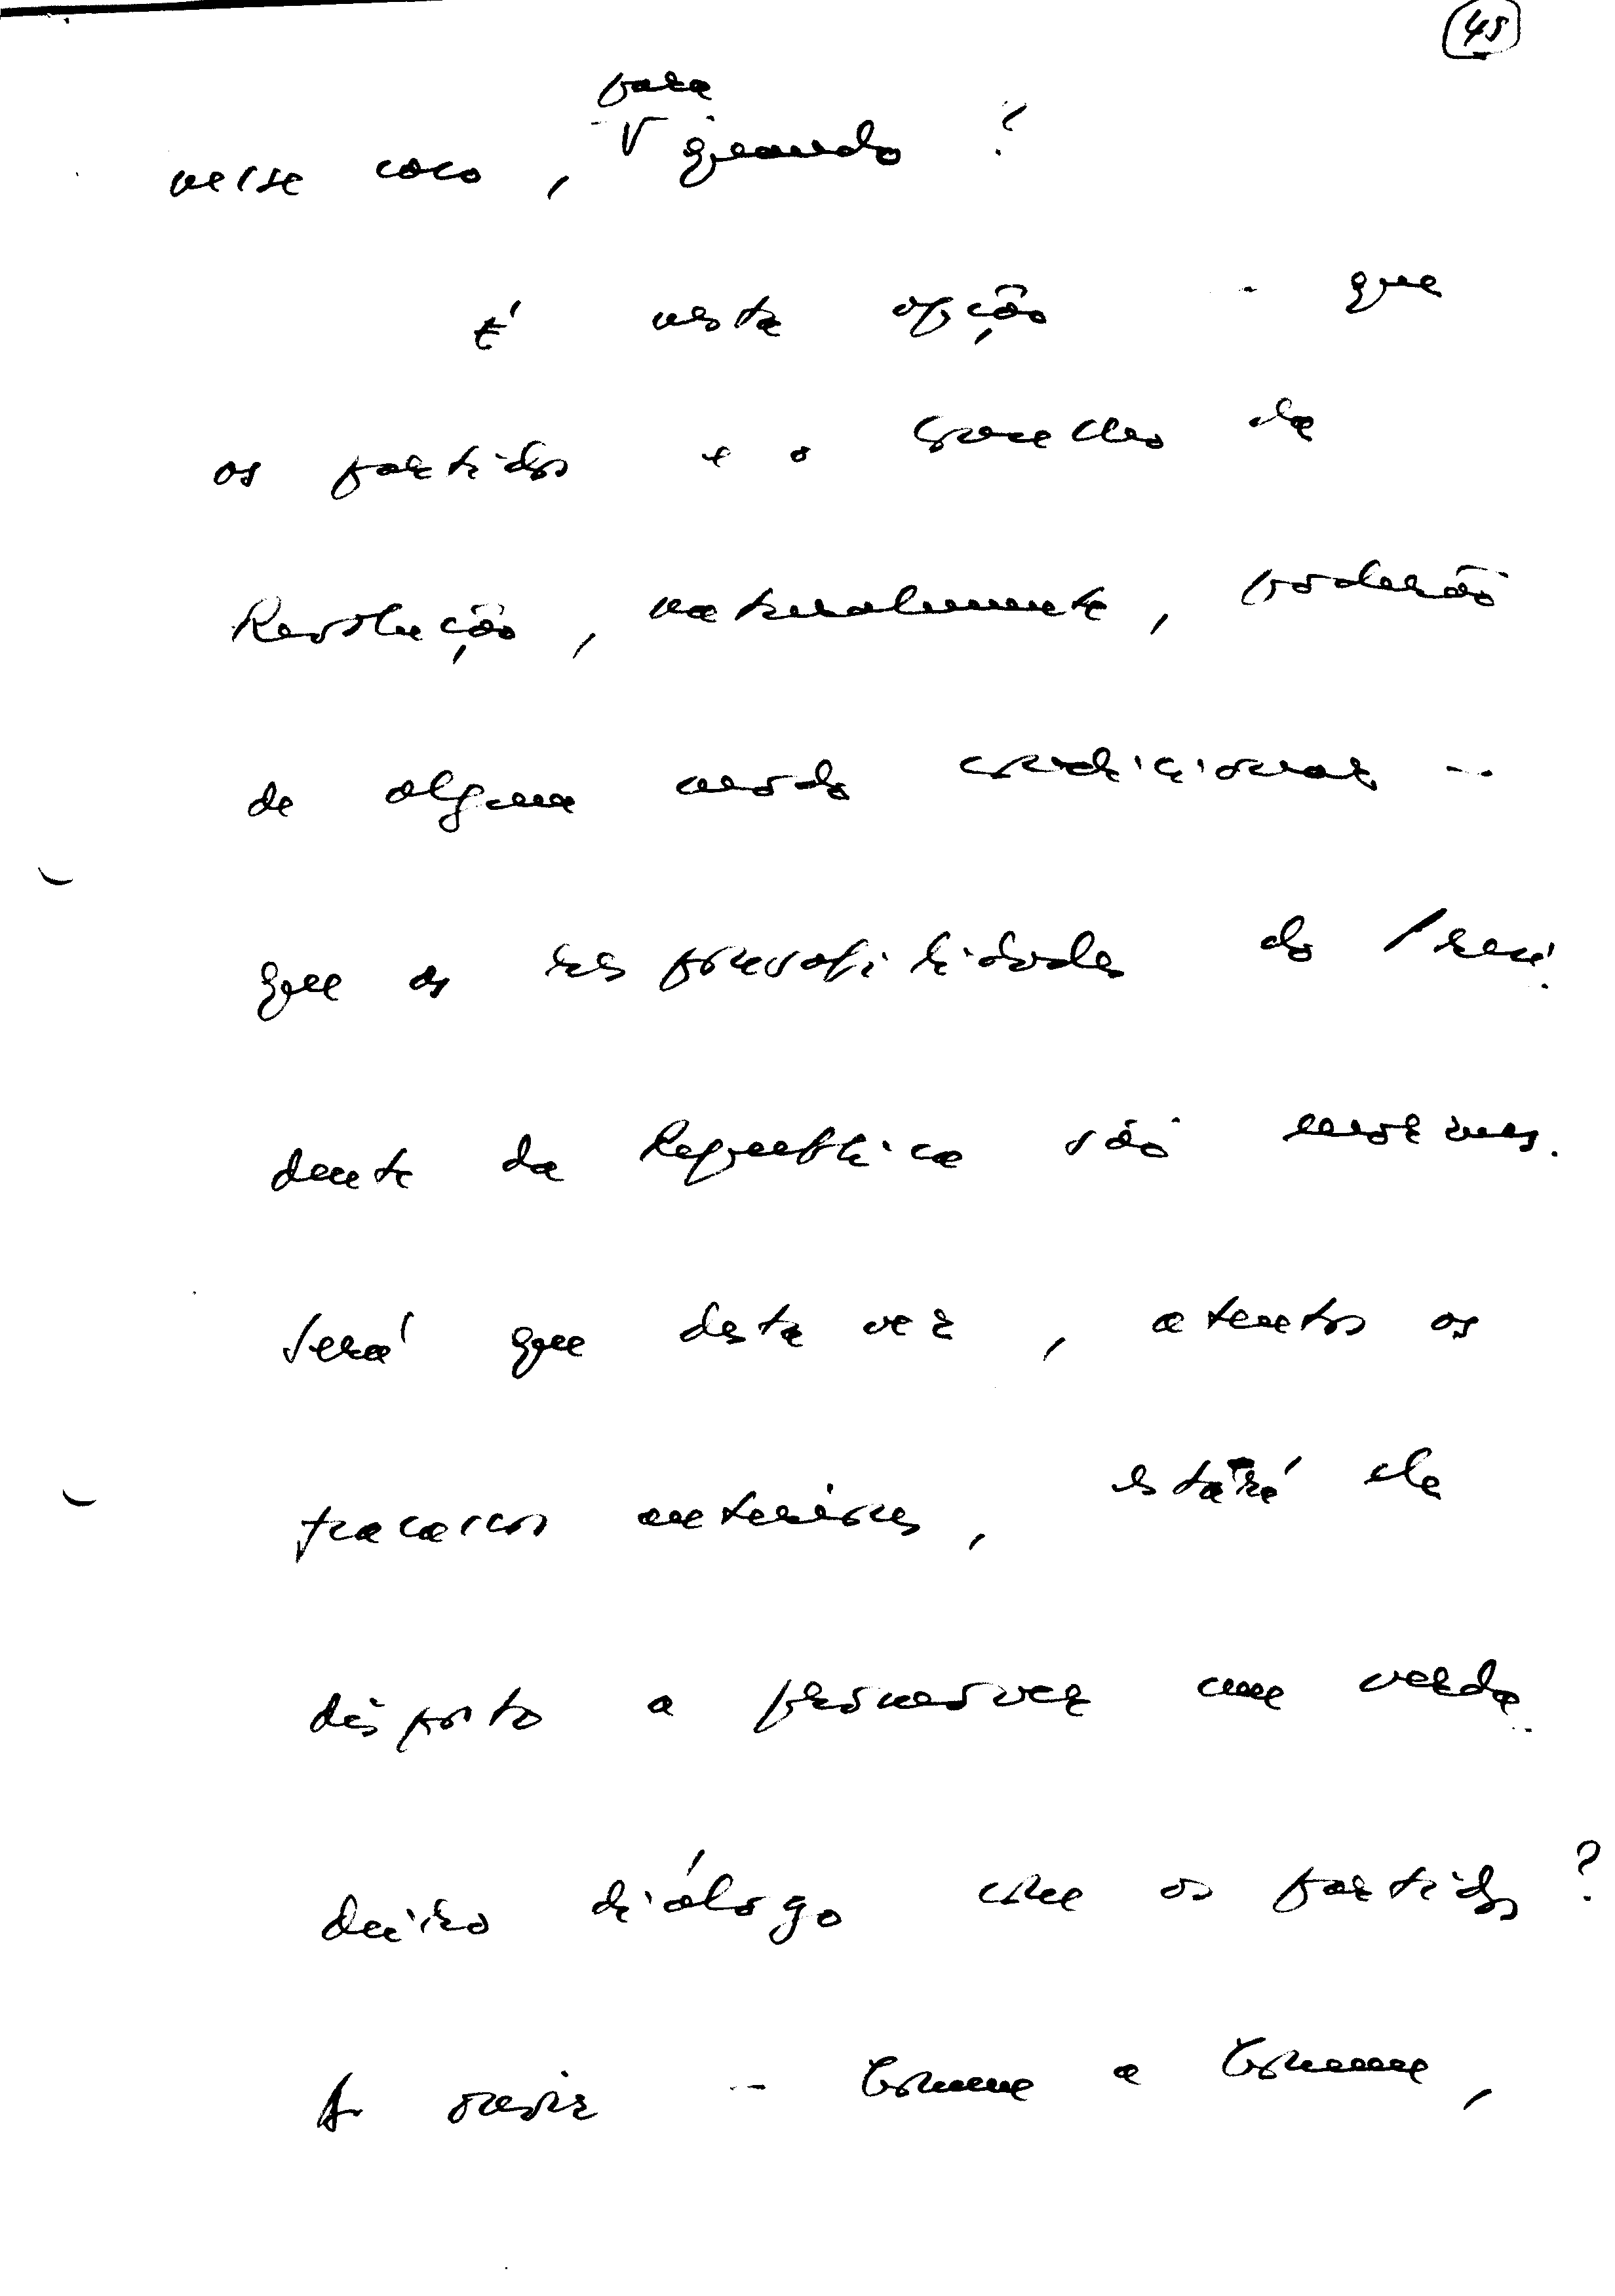 45
para
nesse caso, V quando?
É nesta opção - que
os partidos e o Conselho da
Revolução, naturalmente, poderão
de algum modo condicionar -
que as responsabilidades do Presi-
dente da República são enormes.
Será que desta vez, atentos os
fracassos anteriores, estará ele
disposto a promover um verda-
deiro diálogo com os partidos?
A ouvir - Comuna a Comuna,